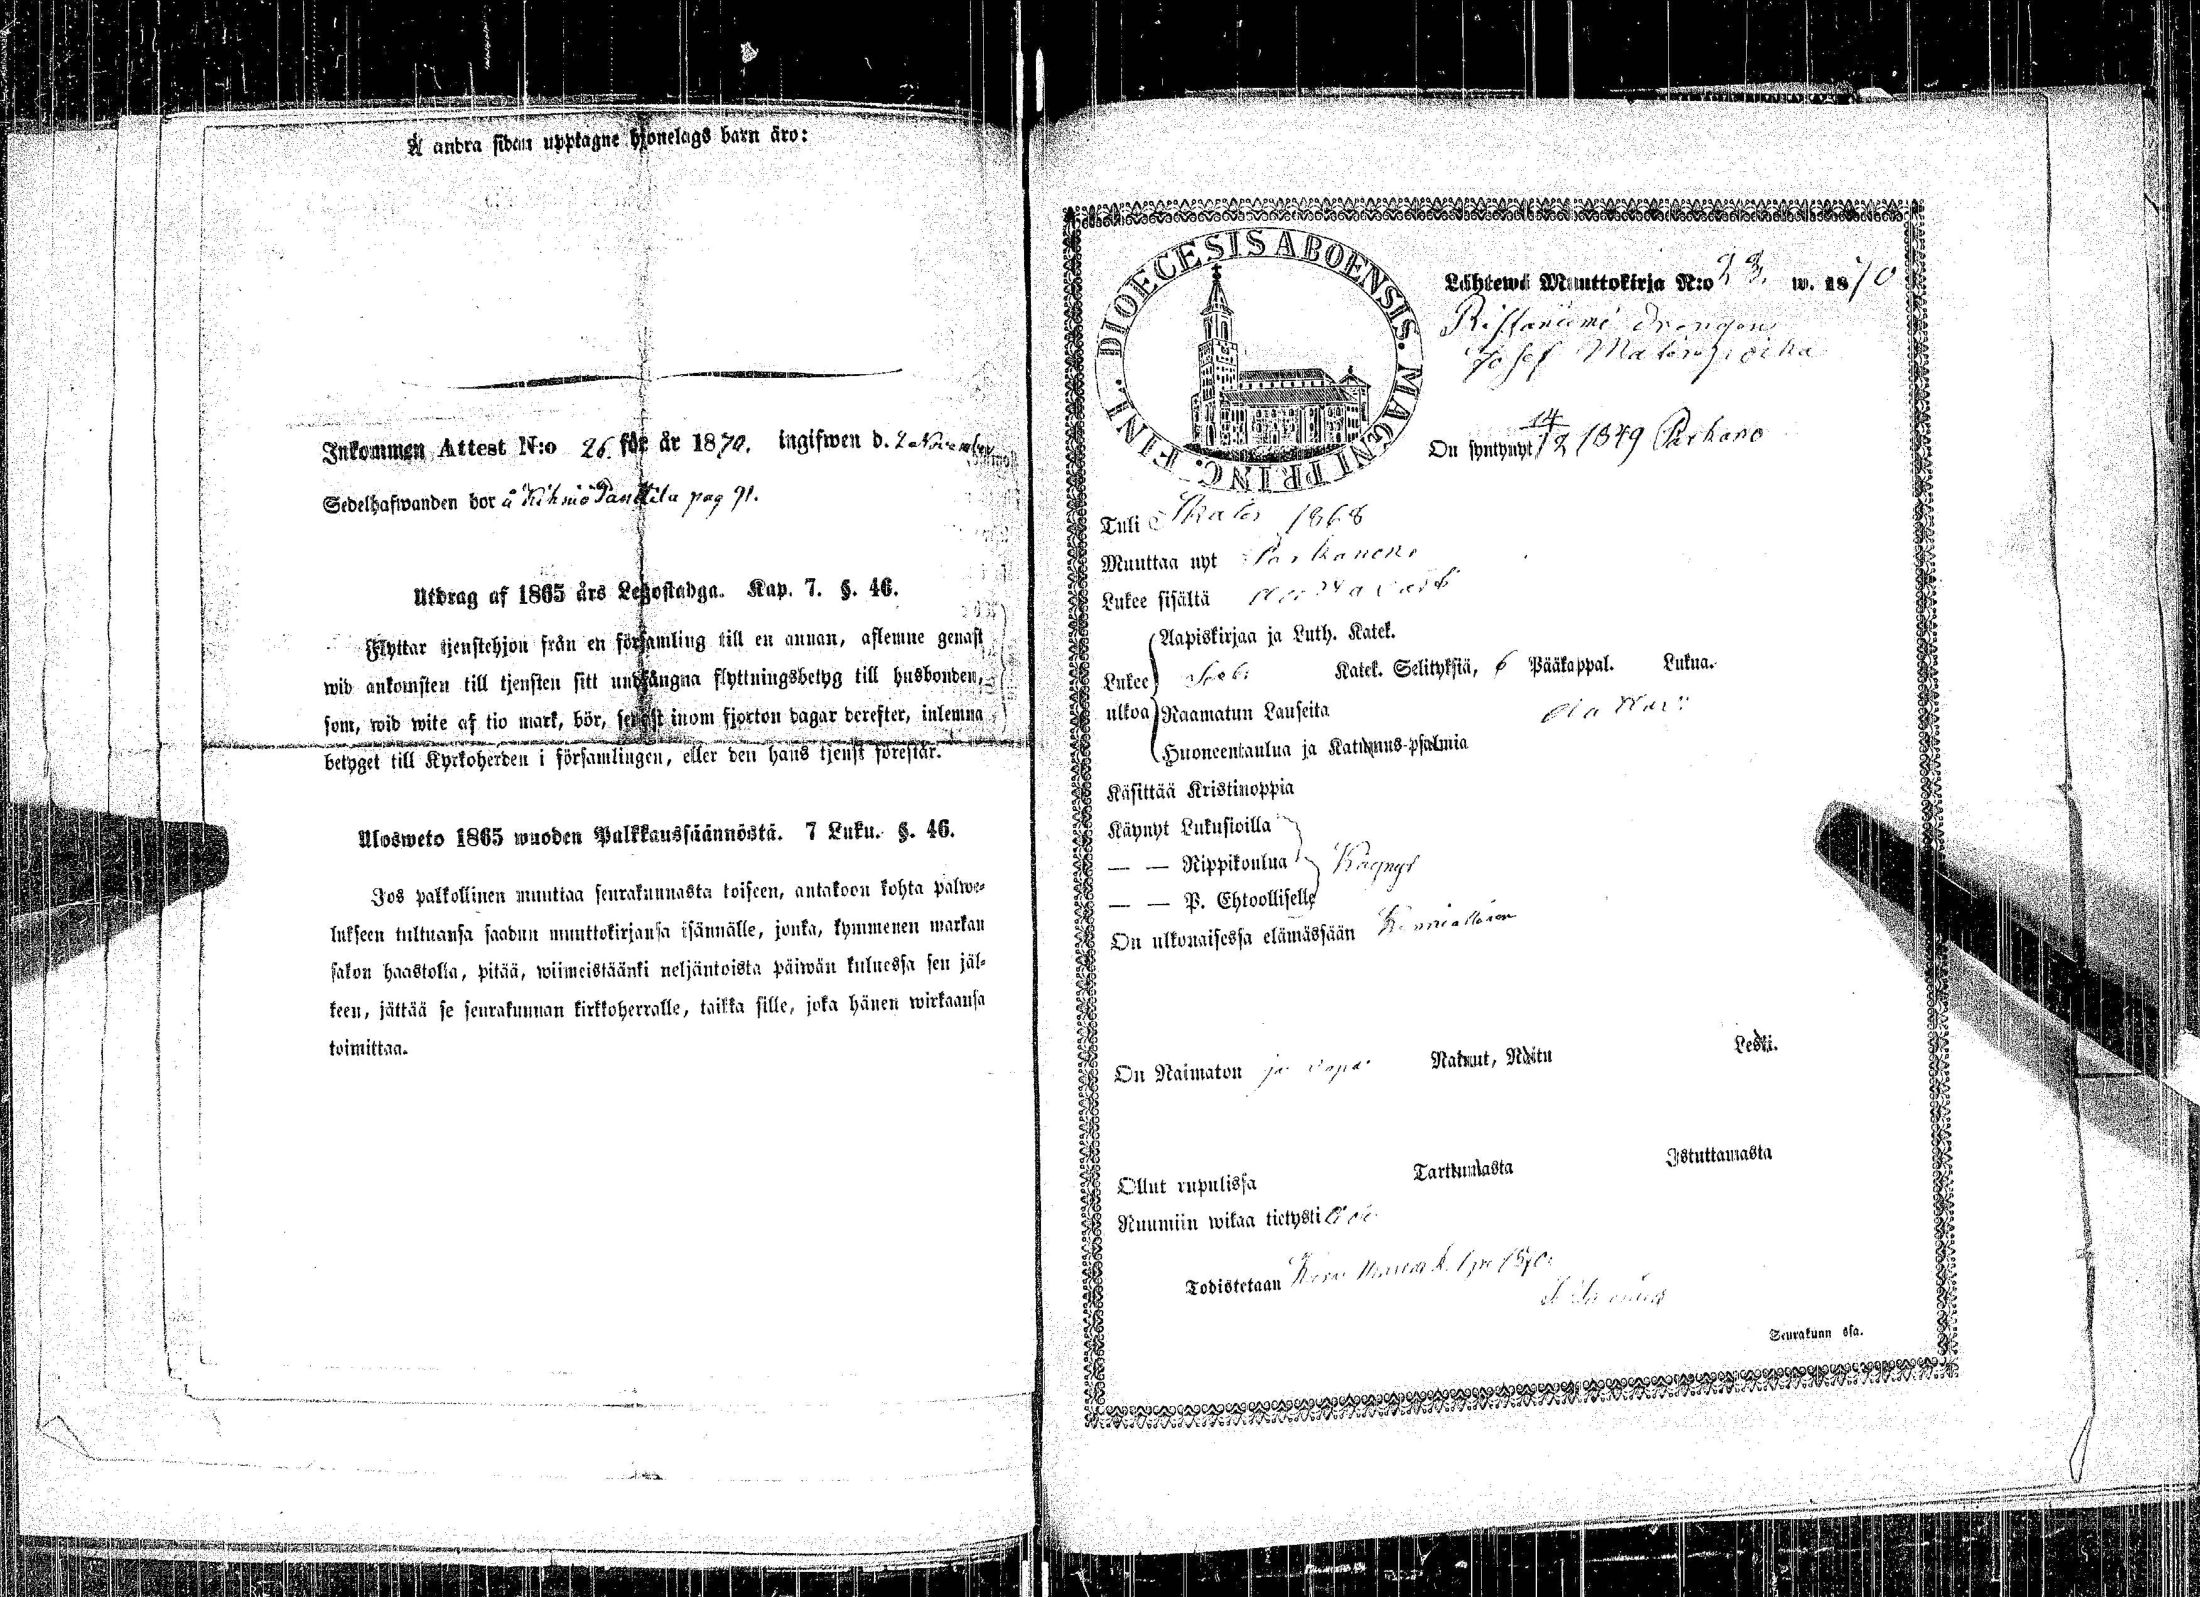 Å andra sidan upptagne hjonelags barn äro:
Inkommen Attest N:o 26. för år 1870. ingifwen d. 2 November
Sedelhafwanden bor å Kihniö Pankkila pag 91.
Utdrag af 1865 års Legostadga. Kap. 7. §. 46.
Flyttar tjenstehjon från en församling till en annan, aflemne genast
wid ankomsten till tjensten sitt undfångna flyttningsbetyg till husbonden,
som, wid wite af tio mark, bör, senast inom fjorton dagar derefter, inlemna
betyget till Kyrkoherden i församlingen, eller den hans tjenst förestår.
Ulosweto 1865 wuoden Palkkaussäännöstä. 7 Luku. §. 46.
Jos palkollinen muuttaa seurakunnasta toiseen, antakoon kohta palwe-
lukseen tultuansa saadun muuttokirjansa isännälle, jonka, kymmenen markan
sakon haastolla, pitää, wiimeistäänki neljäntoista päiwän kuluessa sen jäl-
keen, jättää se seurakunnan kirkkoherralle, taikka sille, joka hänen wirkaansa
toimittaa.
DIOECESIS ABOENSIS. MAGNI PRINC. FINL.
Lähtewä Muuttokirja N:o 23. w. 1870
Ristaniemi drengen
Josef Matinpoika
On syntynyt 14/12 1849 Parkano
Tuli 1868
Muuttaa nyt Parkanoon
Lukee sisältä
Aapiskirjaa ja Luth. Katek.
Lukee Katek. Selityksiä, 6 Pääkappal. Lukua.
ulkoa Raamatun Lauseita
Huoneentaulua ja Katumus-psalmia
Käsittää Kristinoppia
Käynyt Lukusioilla
— — Rippikoulua Käynyt
— — P. Ehtoolliselle
On ulkonaisessa elämässään Kunniallinen
On Naimaton ja vapaa Nainut, Naitu Leski.
Ollut rupulissa Tarttumasta Istuttamasta
Ruumiin wikaa tietysti Ei ole
Todistetaan 1 p. 1870.
Seurakunn ssa.